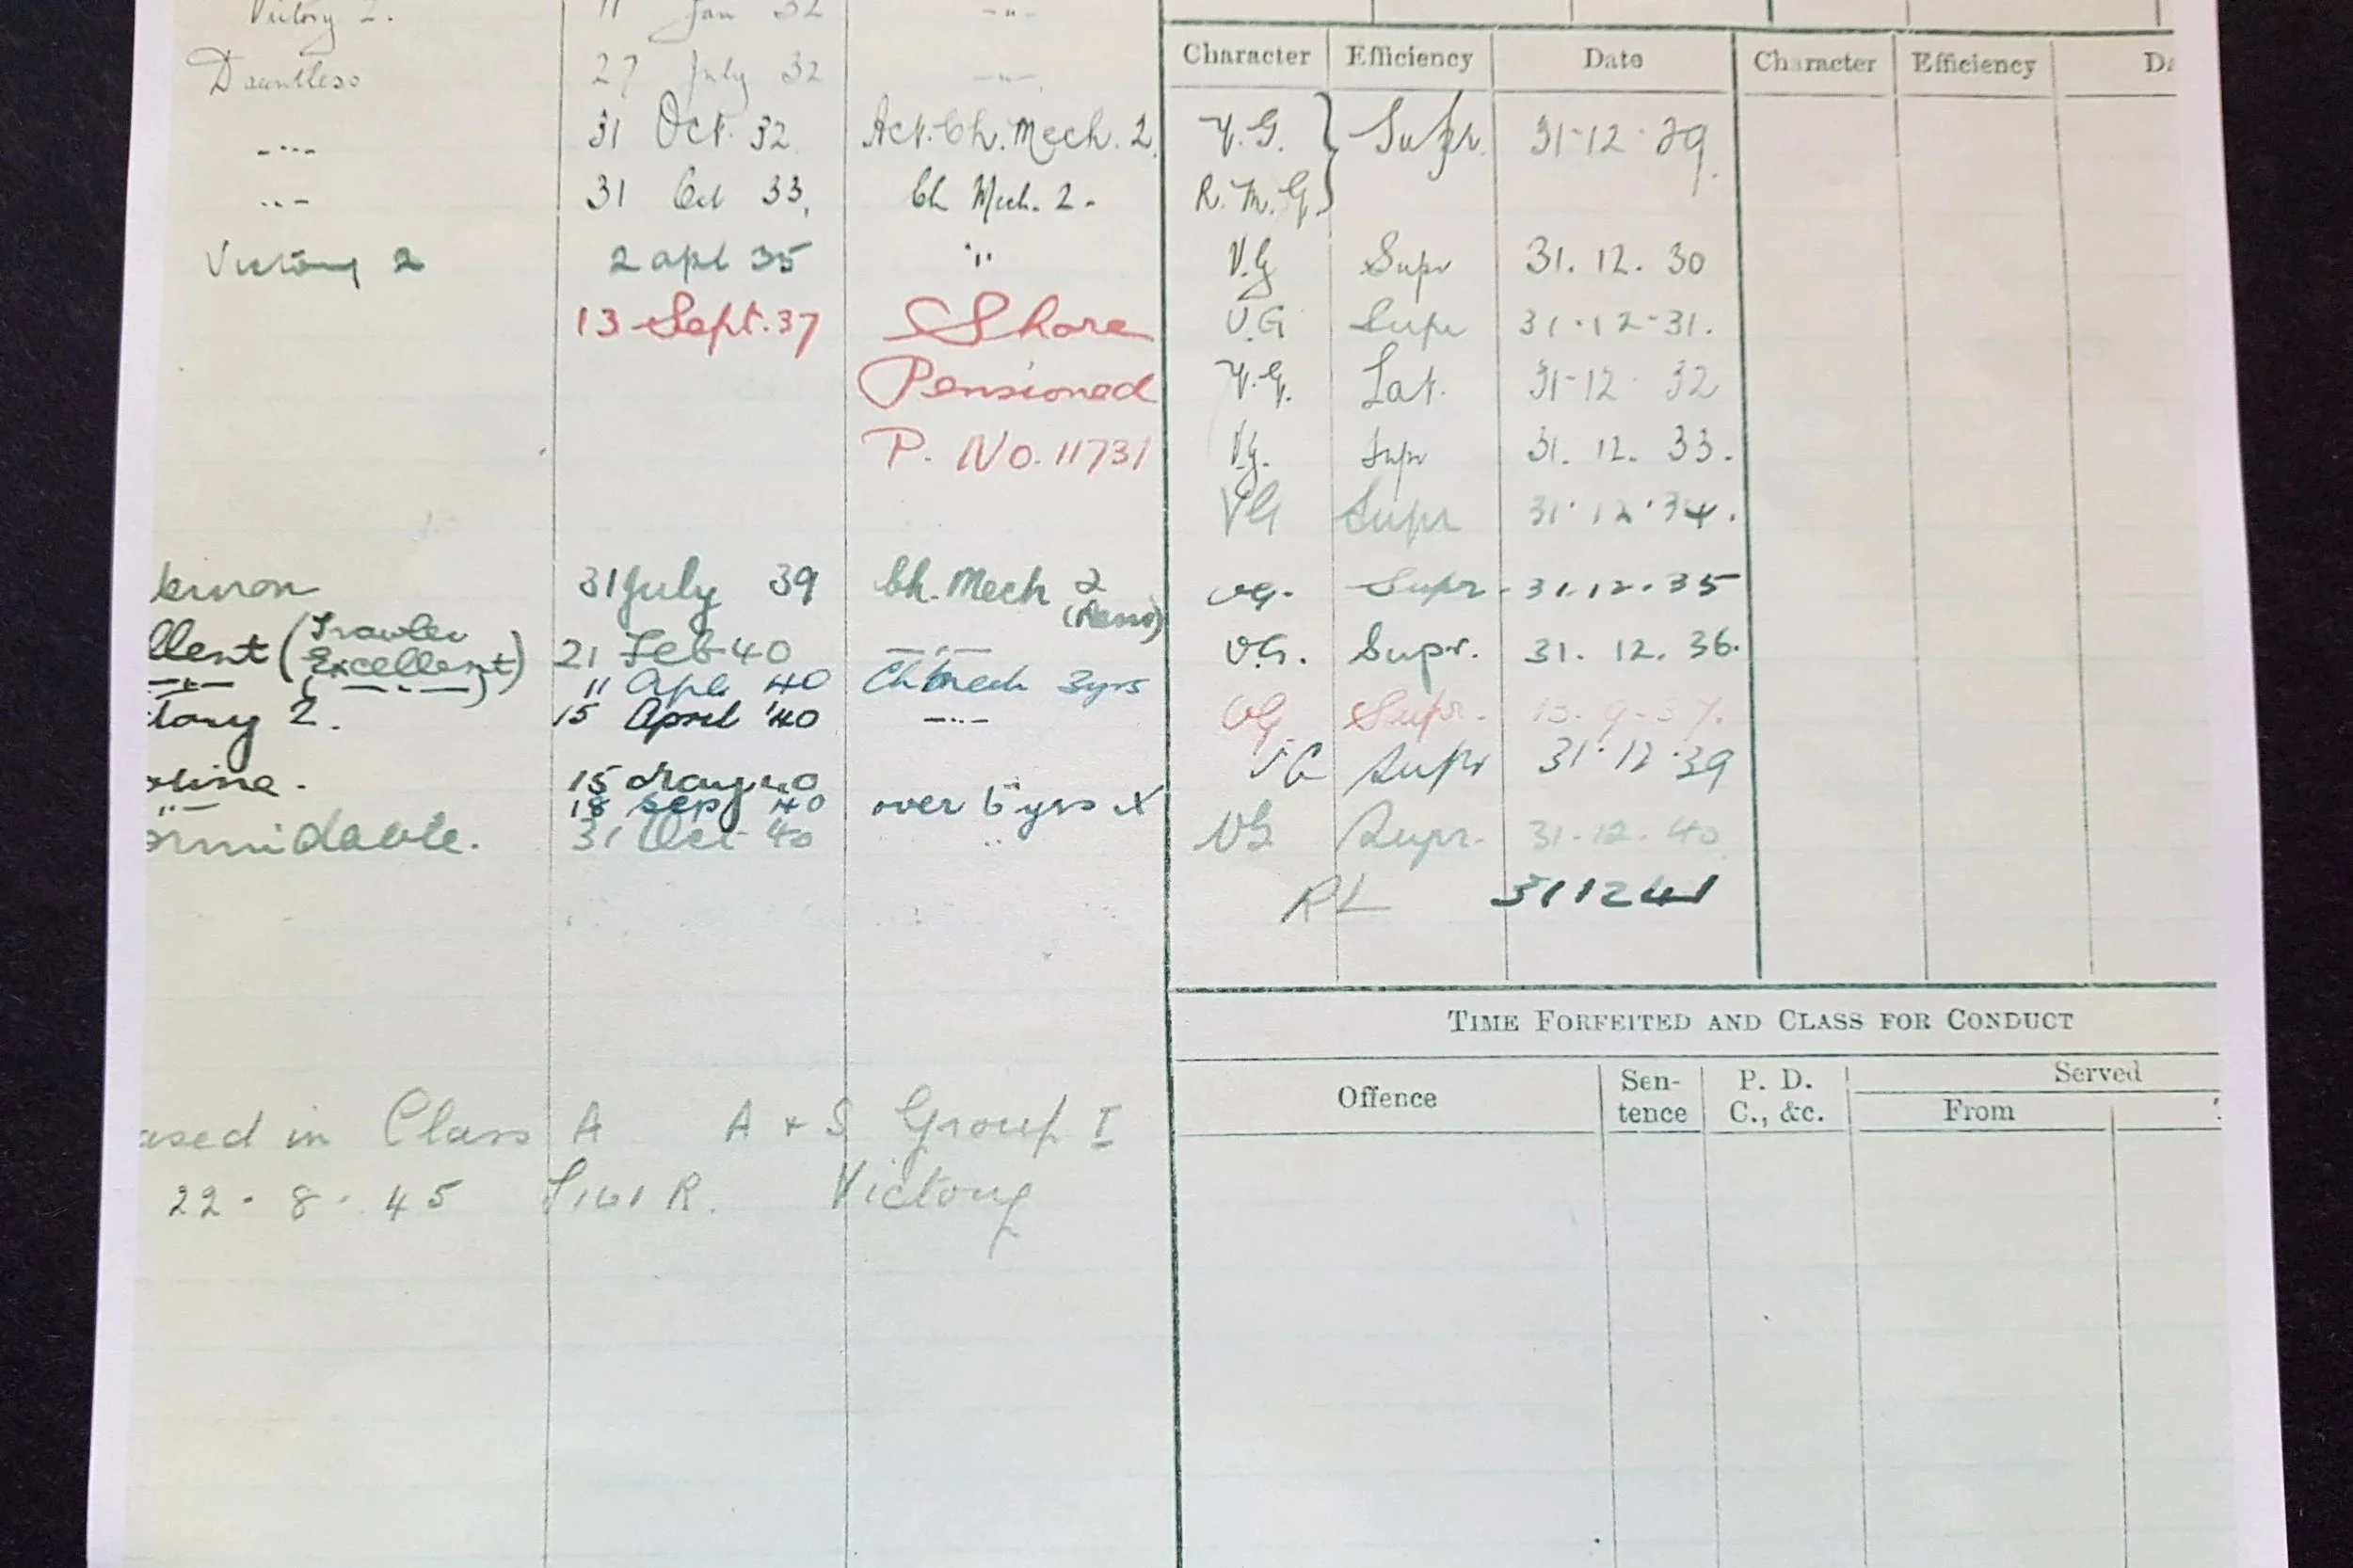 Victory 2. 11 Jan 32 -"-
Dauntless 27 July 32 -"-
-"- 31 Oct. 32 Act. Ch. Mech. 2.
-"- 31 Oct 33, Ch Mech. 2-
Victory 2 2 apl 35 "
13 Sept. 37 Shore
Pensioned
P. No. 11731
31 July 39 Ch. Mech 2
llent (Trawler Excellent) 21 Feb 40 -"-
-"- (-"-) 11 Apl 40 Ch Mech 3yrs
tory 2. 15 April '40 -"-
oline. 15 May 40
-"- 18 Sep 40 over 6 yrs X
ormidable. 31 Oct 40 "
ased in Class A A + S Group I
22 . 8 . 45 Victory
Character Efficiency Date Character Efficiency Da
V.G. } Supr. 31-12-29.
R.M.G. }
V.G Supr 31. 12. 30
V.G Supr 31.12-31.
V.G. Sat. 31-12 32
V.G. Supr 31. 12. 33.
VG Supr 31.12.34.
VG. Supr - 31.12.35
V.G. Supr. 31. 12. 36.
VG Supr. 13.9-37.
VG Supr 31.12.39
VG Supr. 31.12.40
RL 311241
TIME FORFEITED AND CLASS FOR CONDUCT
Offence Sen-tence P. D. C., &c. Served
From